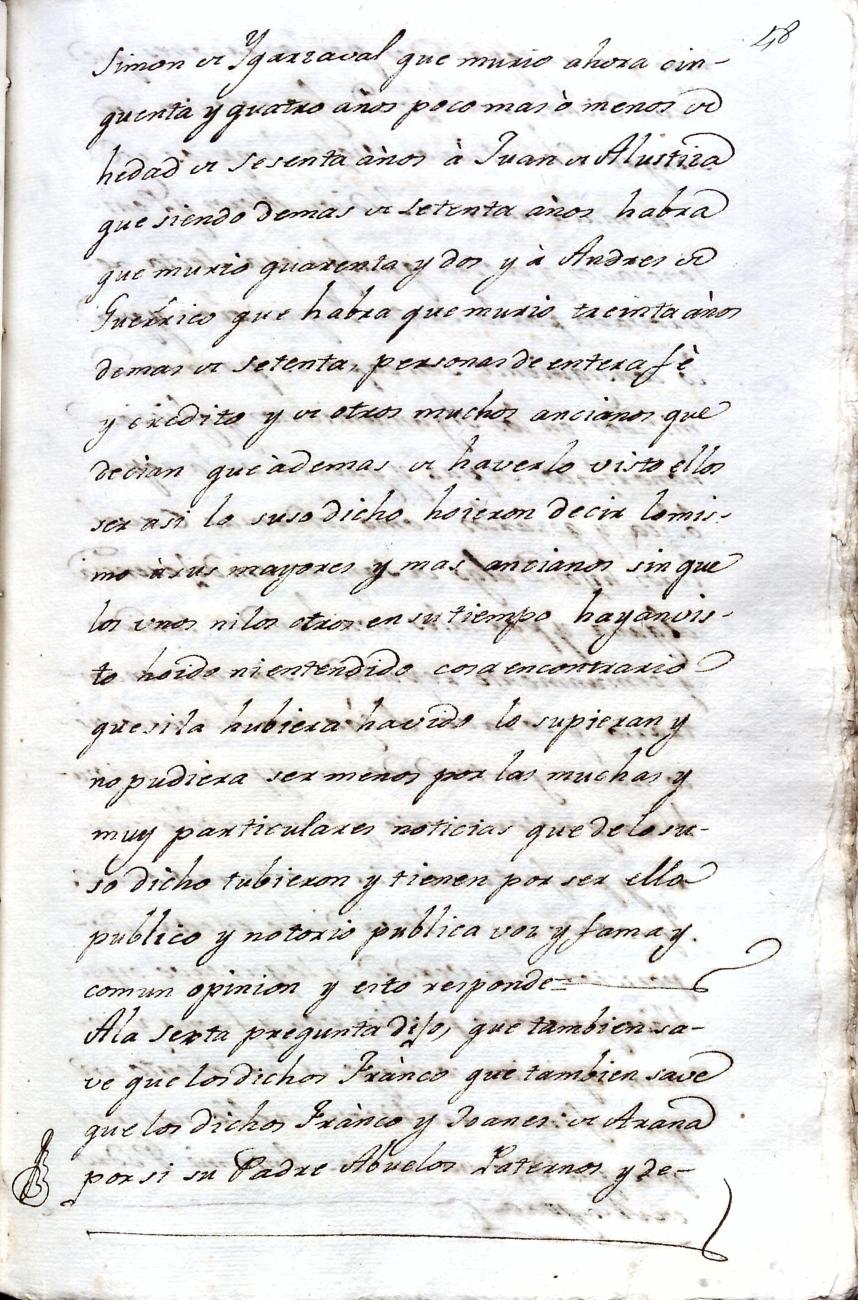 48
Simon de Ygarzaval que murio ahora cin-
quenta y quatro años poco mas ò menos de
hedad de sesenta años à Juan de Alustiza
que siendo demas de setenta años habra
que murio quarenta y dos y à Andres de
Guerrico que habra que murio treinta años
demas de setenta, personas de entera fè
y credito y de otros muchos ancianos que
decian que àdemas de haverlo visto ellos
ser asi lo suso dicho hoieron decir lo mis-
mo à sus mayores y mas ancianos sin que
los unos ni los otros en su tiempo hayan vis-
to hoido ni entendido cosa en contrario
que si la hubiera havido lo supieran y
no pudiera ser menos por las muchas y
muy particulares noticias que de lo su-
so dicho tubieron y tienen por ser ello
publico y notorio publica voz y fama y
comun opinion y esto responde=
Ala sexta pregunta dijo, que tambien sa-
ve que los dichos Frànco que tambien save
que los dichos Frànco y Joanes de Arana
por si su Padre Abuelos Paternos y de-